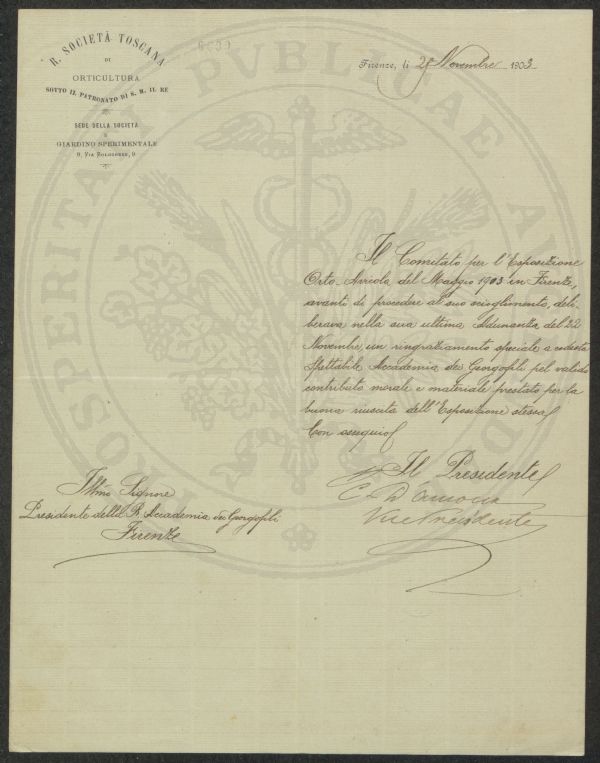 R. SOCIETÀ TOSCANA
DI
ORTICULTURA
SOTTO IL PATRONATO DI S. M. IL RE
SEDE DELLA SOCIETÀ
E
GIARDINO SPERIMENTALE
9, Via Bolognese, 9
Firenze, li Novembre 1903
Il Comitato per l'Esposizione
Orto-Avicola del Maggio 1903 in Firenze,
avanti di procedere al suo scioglimento, deli-
berava nella sua ultima Adunanza del 22
Novembre, un ringraziamento speciale a codesta
Spettabile Accademia dei Georgofili pel valido
contributo morale e materiale prestato per la
buona riuscita dell'Esposizione stessa
Con ossequio
Il Presidente
Vice Presidente
Illmo Signore
Presidente della R. Accademia dei Georgofili
Firenze
PROSPERITATI PUBLICAE AUGENDAE